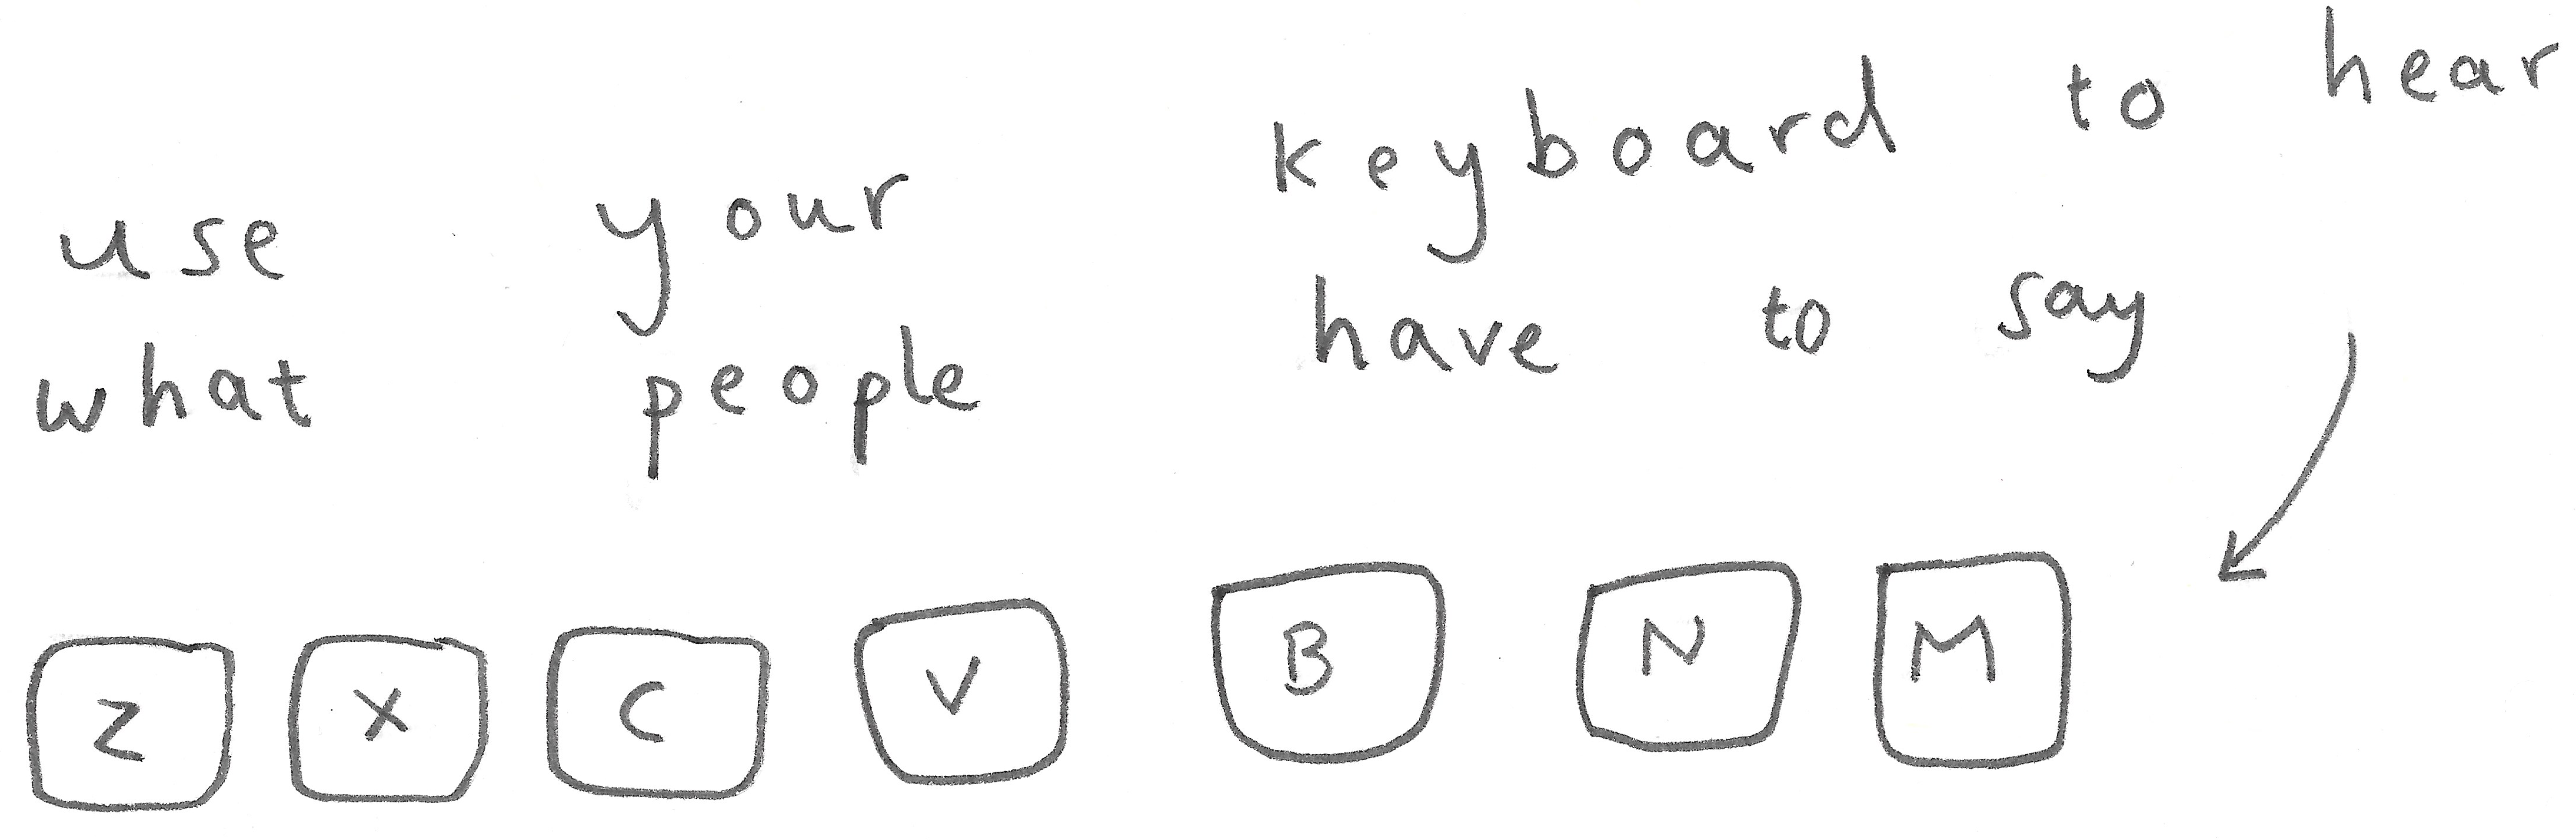 use your keyboard to hear
what people have to say
Z X C V B N M